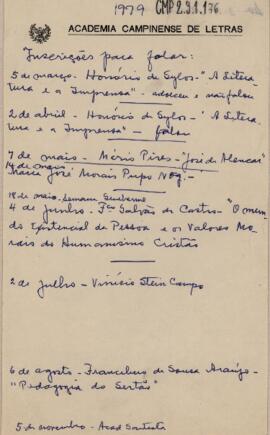 1979 CMP2.3.1.176
ACADEMIA CAMPINENSE DE LETRAS
Inscrições para falar:
5 de março - Honório de Sylos - "A Litera-
tura e a Imprensa" - adoeceu e não falou
2 de abril - Honório de Sylos - "A Litera-
tura e a Imprensa" - falou
7 de maio - Mário Pires - "José de Alencar"
14 de maio
Maria José Morais Pupo Nog.
18 de maio - Semana Guilherme
4 de Junho - Fco Galvão de Castro - "O mun-
do Existencial da Pessoa e os Valores Mo-
rais do Humanismo Cristão
2 de Julho - Vinício Stein Campos
6 de agosto - Francelino de Sousa Araújo -
"Pedagogia do Sertão"
5 de novembro - Acad